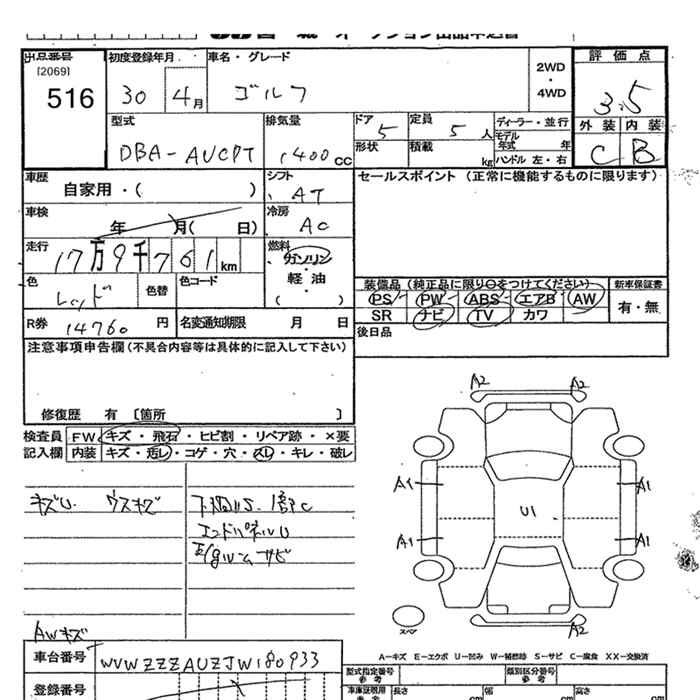 出品番号 [2069] 516
初度登録年月 30 4月
車名・グレード ゴルフ
2WD・4WD
評価点 3.5
外装 内装
C B
型式 DBA-AUCPT
排気量 1400cc
ドア 5
定員 5人
形状 積載 kg
ディーラー・並行
モデル年式 年
ハンドル 左・右
車歴 自家用・( )
シフト AT
セールスポイント (正常に機能するものに限ります)
車検 年 月( 日)
冷房 AC
走行 17万9千761km
燃料 ガソリン・軽油( )
色 レッド 色替 色コード
装備品 (純正品に限り○をつけてください)
新車保証書
PS PW ABS エアB AW
SR ナビ TV カワ
有・無
R券 14760円
名変通知期限 月 日
後日品
注意事項申告欄(不具合内容等は具体的に記入して下さい)
修復歴 有 〔箇所 〕
検査員 FW キズ・飛石・ヒビ割・リペア跡・×要
記入欄 内装 キズ・汚レ・コゲ・穴・スレ・キレ・破レ
キズU. ウスキズ
下廻りS. 1部C
エンドパネルU
E/gルームサビ
AWキズ
A2 A2
A1 A1
U1
A1 A1
A2 A2
スペア
A-キズ E-エクボ U-凹み W-補修跡 S-サビ C-腐食 XX-交換済
車台番号 WVWZZZAUZJW180933
登録番号
型式指定番号 参考
類別区分番号 参考
車庫証明用 参考 長さ cm 幅 cm 高さ cm